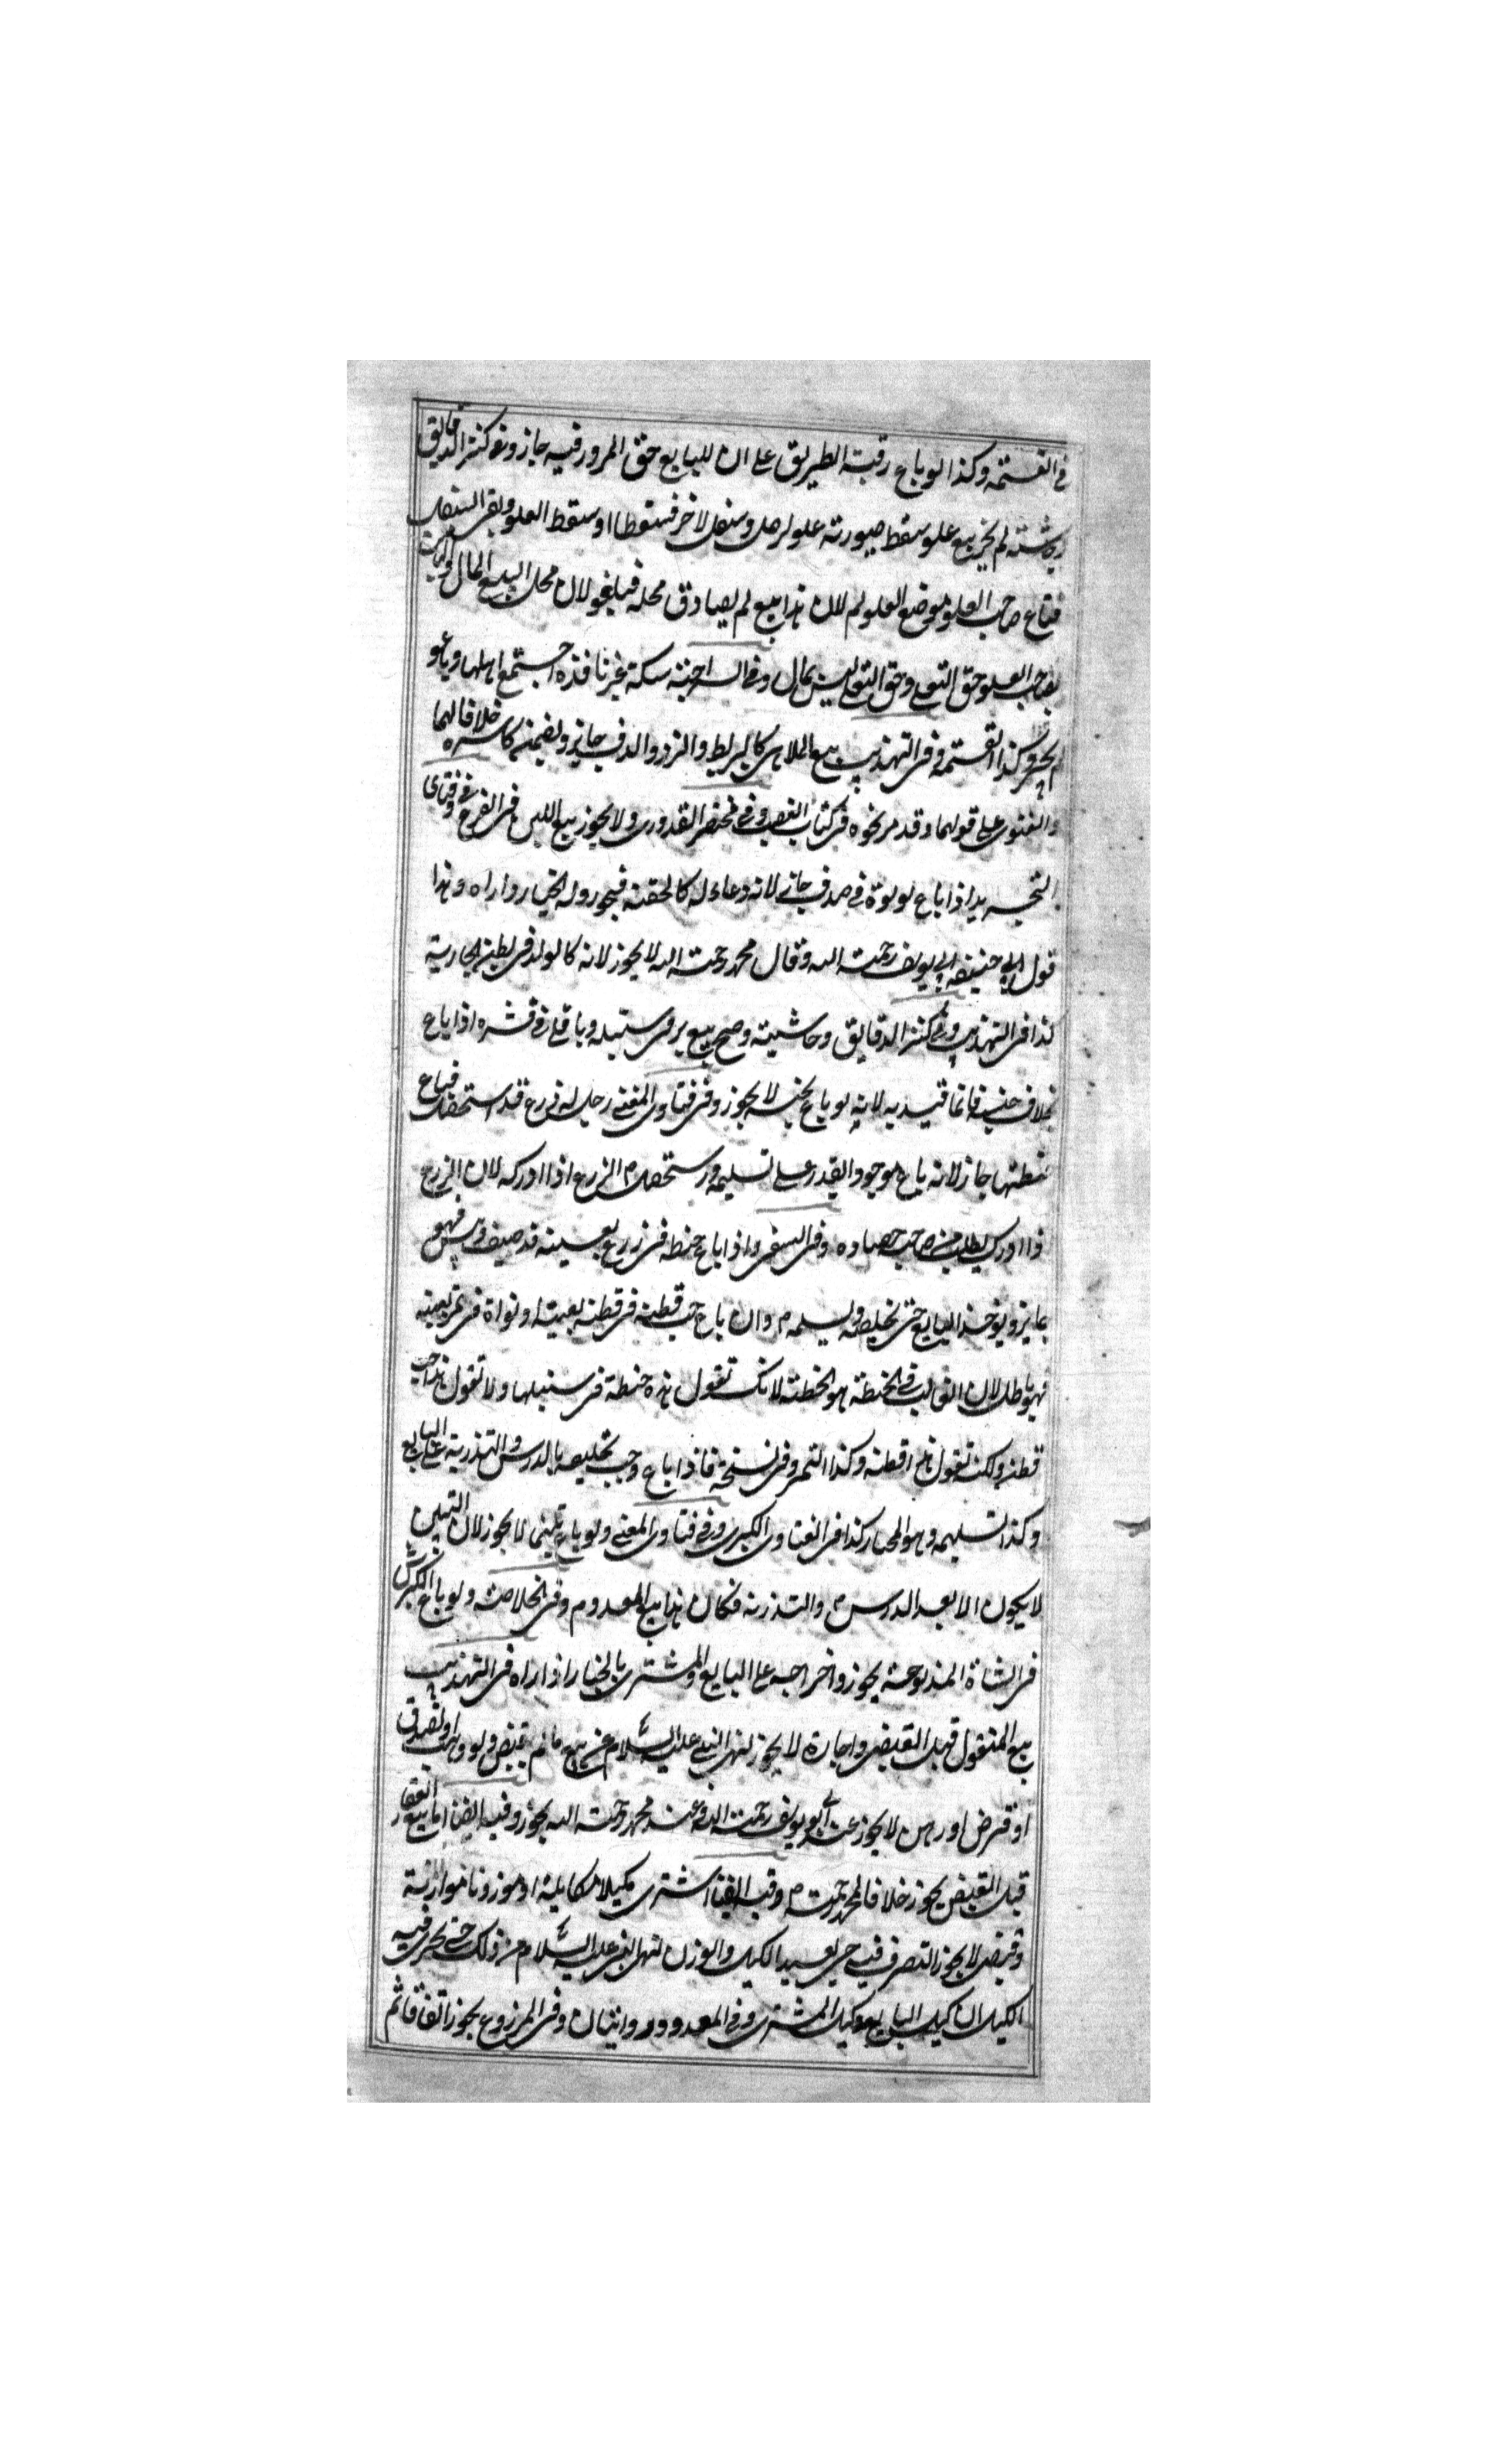 في القسمة وكذا لو باع رقبة الطريق على ان للبايع حق المرور فيه جاز وفي كنز الدقايق
وحاشيته لم يجز بيع علو سقط صورته علو لرجل وسفل لاخر فسقطا او سقط العلو وبقي السفل
فباع صاحب العلو موضع العلو لم لان هذا بيع لم يصادق محله فيلغو لان محل البيع المال
لصاحب العلو حق التعلي وحق التعلي ليس بمال وفي السراجية سكة غير نافذة اجتمع اهلها وباعو
لم يجز وكذا القسمة وفي التهذيب بيع الملاهي كالبربط والنرد والدف جايز ويضمنه كاسره خلافا لهما
والفتوى على قولهما وقد مر نحوه في كتاب الغصب وفي مختصر القدوري ولا يجوز بيع اللبن في الضرع وفي فتاوى
التجسيد اذا باع لولوة في صدف جاز لانه وعاء له كالحقة فيجوز وله الخيار وارآه وهذا
قول ابي حنيفه ابي يوسف رحمت الله وقال محمد رحمت الله لا يجوز لانه كالولد في بطن الجارية
كذا في التهذيب وفي كنز الدقايق وحاشيته وصح بيع بر في سنبله وباقلى في قشره اذا باع
بخلاف جنسه فانما قيد به لانه لو باع بجنسه لا يجوز وفي فتاوى المغني رجل له زرع قد استحصد فباع
حنطتها جاز لانه باع موجودا يقدر على تسليمه و استحصد الزرع اذا ادركه لان الزرع
اذا ادرك يطلب من صاحب حصاده وفي السفي واذا باع حنطه في زرع بعينه قد صيف ويبس فهو
جايز ويوخذ البايع حتى يخلصه ويسلمه وان باع حب قطنه في قطنه بعينه او نواة في تمر بعينه
فهو باطل لان الغالب في الحنطة هو الحنطة لانك تقول هذه حنطة في سنبلها ولا تقول هذا حب
قطن ولكن تقول هذا قطنه وكذا التمر وفي نسخة فاذا باع وجب تخليصه بالدرس والتذرية على البايع
وكذا تسليمه وهو المختار كذا في الفتاوى الكبرى وفي فتاوى المغني ولو باع تبنها لا يجوز لان التبن
لا يكون الا بعد الدرس والتذرية فكان هذا بيع المعدوم وفي الخلاصة ولو باع الكرش
في الشاة المذبوحة يجوز واخراجه على البايع والمشتري بالخيار اذا رآه في التهذيب
بيع المنقول قبل القبض واجارة لا يجوز لنهي النبي عليه السلام عن بيع ما لم يقبض ولو وهب او تصدق
او قرض او رهن لا يجوز عند ابو يوسف رحمت الله وعند محمد رحمت الله يجوز وفيه ايضا اما بيع العقار
قبل القبض يجوز خلافا لمحمد رحمت وفيه ايضا اشترى مكيلا مكايلة او موزونا موازنة
وقبض لا يجوز التصرف فيه حتى يعيد الكيل والوزن لنهي النبي عليه السلام عن ذلك حتى يجري فيه
الكيلان كيل البايع وكيل المشتري وفي المعدود روايتان وفي المزروع يجوز اتفاقا ثم